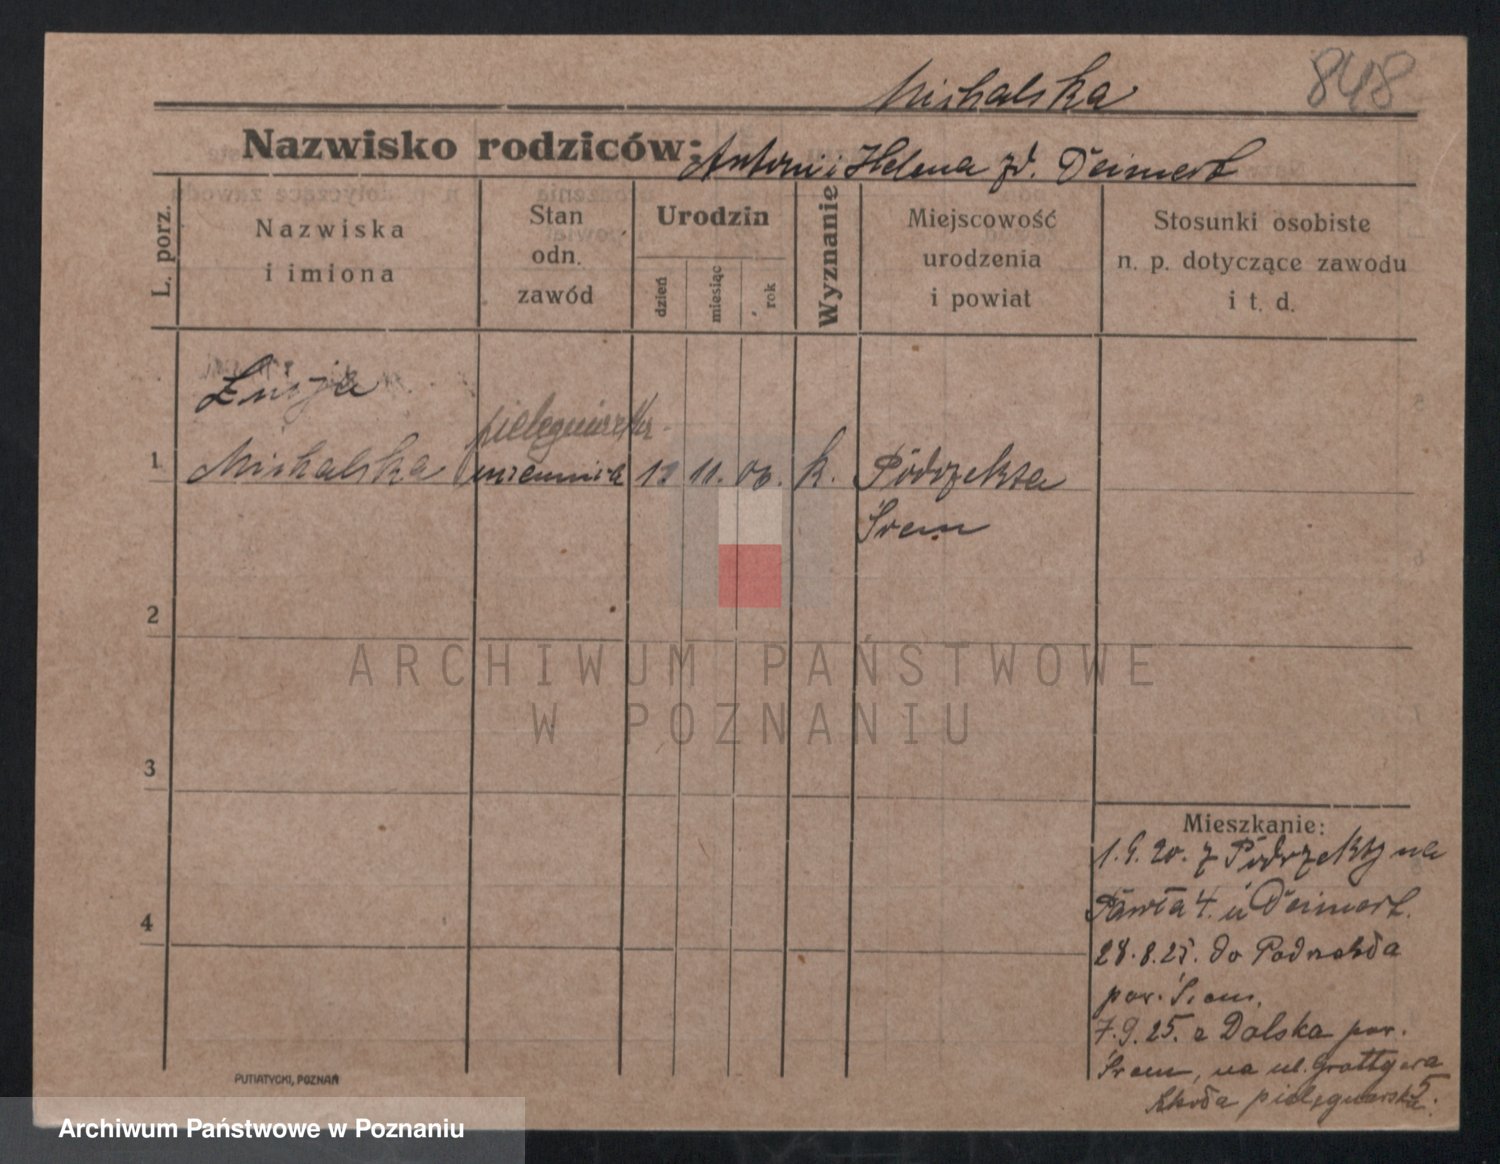 Michalska 848
Nazwisko rodziców: Antoni i Helena zd. Deimert
L. porz.
Nazwiska
i imiona
Stan
odn.
zawód
Urodzin
dzień
miesiąc
rok
Wyznanie
Miejscowość
urodzenia
i powiat
Stosunki osobiste
n. p. dotyczące zawodu
i t. d.
Łucja
pielęgniarka
1 Michalska uczennica 11. k. Podrzekta
Śrem
2
ARCHIWUM PAŃSTWOWE
W POZNANIU
3
Mieszkanie:
z Podrzekty na
4 Pawła 4. u Deimert.
28.8.25. do
pow. Śrem.
7.9.25. z Dolska pow.
Śrem, na ul. Grottgera
5.
Szkoła pielęgniarska
PUTIATYCKI, POZNAŃ
Archiwum Państwowe w Poznaniu